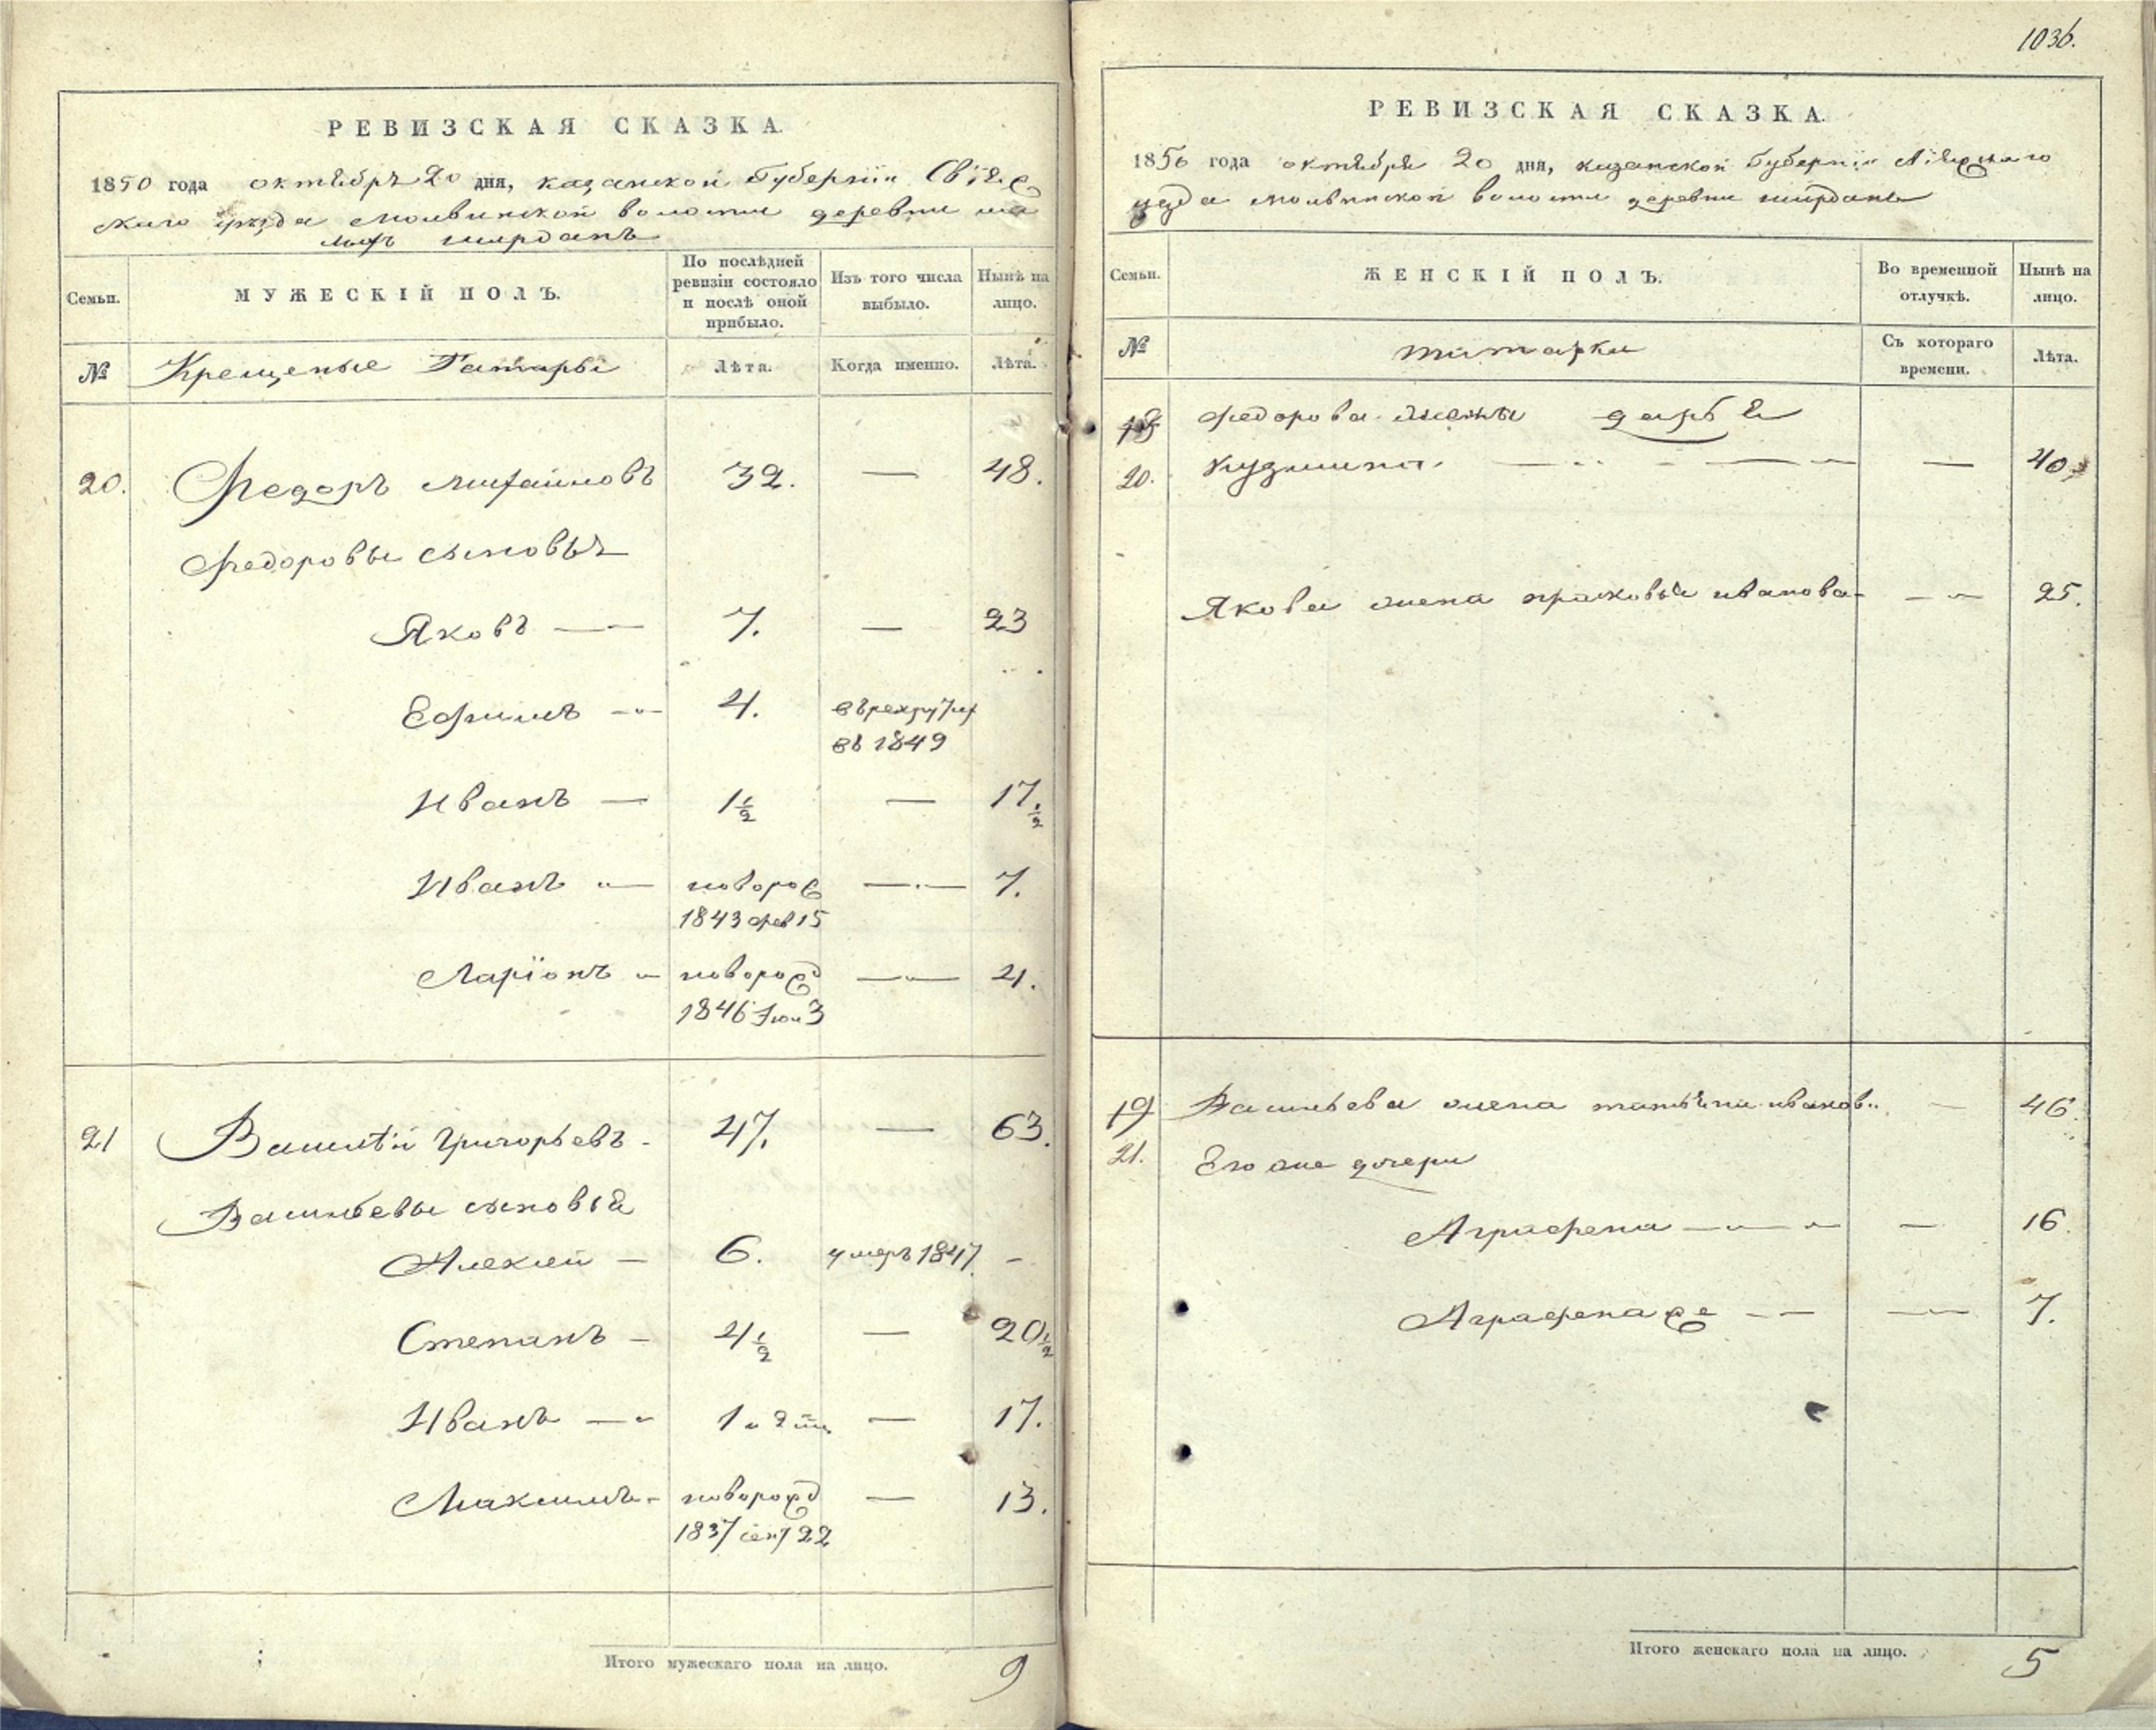 РЕВИЗСКАЯ СКАЗКА.
1850 года октября 20 дня, казанской Губернїи Свїяж
скаго уезда молвинской волости деревни ма
лыхъ ширданъ
Семьи.
МУЖЕСКІЙ ПОЛЪ.
По послѣдней ревизіи состояло и послѣ оной прибыло.
Изъ того числа выбыло.
Нынѣ на лицо.
№ Крещеные Татары Лѣта. Когда именно. Лѣта.
20. Федоръ михаиловъ 32. — 48.
Федоровы сыновья
Яковъ — 7. — 23
Ефимъ — 4. въ рекруты
въ 1849
Иванъ — 1½ — 17.½
Иванъ — новорож — 7.
1843 фев 15
Ларїонъ —новорожд — 4.
1846 Iюн 3
21 Василѣй Григорьевъ 47. — 63.
Васильевы сыновья
Алексей — 6. умеръ 1847. —
Степанъ — 4½ — 20½
Иванъ — 1 — 17.
Максимъ — новорожд — 13.
1837 сент 22
Итого мужескаго пола на лицо. 9
1036.
РЕВИЗСКАЯ СКАЗКА.
1850 года октября 20 дня, казанской Губернїи
уезда молвинской волости деревни ширданъ
Семьи.
ЖЕНСКІЙ ПОЛЪ.
Во временной отлучкѣ.
Нынѣ на лицо.
№ татарки Съ котораго времени. Лѣта.
Федорова жена дарья
20. Кузмина — — 40.
Якова жена прасковья иванова — 25.
19 Васильева жена татьяна иванов — 46.
21. Его же дочери
Аграфена — — 16.
Аграфена же — — 7.
Итого женскаго пола на лицо. 5